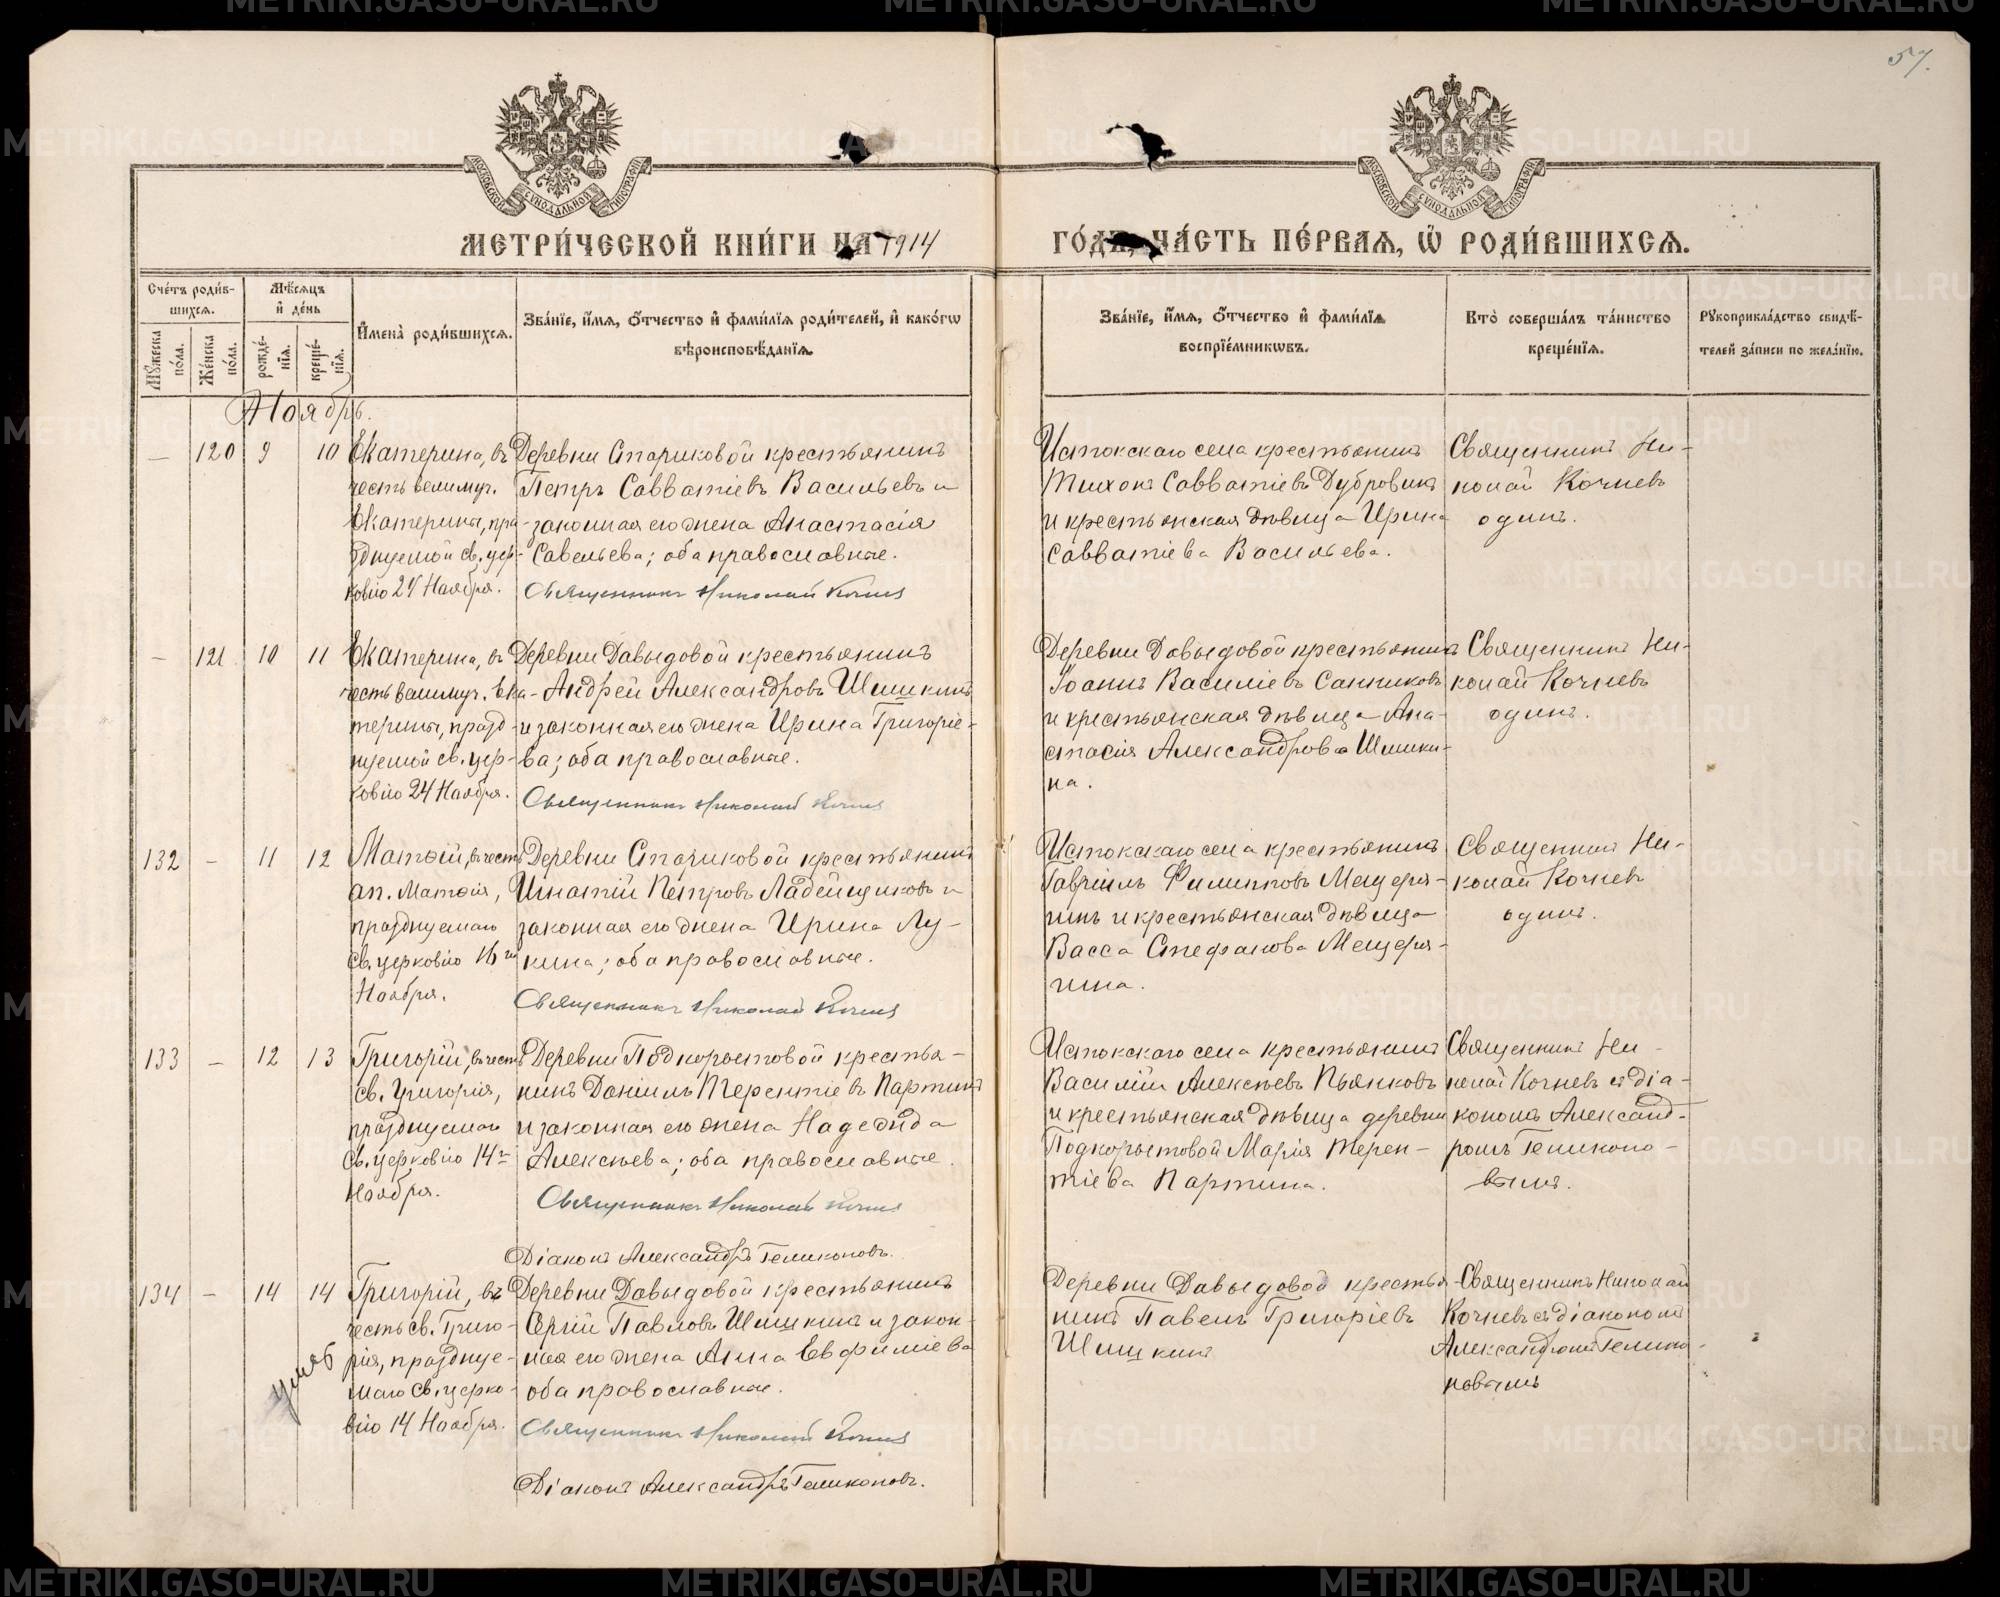 57.
МОСКОВСКОЙ СУНОДАЛЬНОЙ ТИПОГРАФІИ
МОСКОВСКОЙ СУНОДАЛЬНОЙ ТИПОГРАФІИ
МЕТРИ́ЧЕСКОЙ КНИ́ГИ НА 1914
ГО́ДЪ, ЧА́СТЬ ПЕ́РВАѦ, Ѡ҆ РОДИ́ВШИХСѦ.
Сче́тъ роди́в-
шихсѧ.
Мꙋ́жеска по́ла.
Же́нска по́ла.
Мѣ́сѧцъ
и҆ де́нь
рожде́-
нїѧ.
креще́-
нїѧ.
И҆мена̀ роди́вшихсѧ.
Зва́нїе, и҆́мѧ, ѻ҆́тчество и҆ фами́лїѧ роди́телей, и҆ како́гѡ
вѣроисповѣ́данїѧ.
Зва́нїе, и҆́мѧ, ѻ҆́тчество и҆ фами́лїѧ
воспрїе́мникѡвъ.
Кто̀ соверша́лъ та́инство
креще́нїѧ.
Рꙋкоприкла́дство свидѣ́-
телей за́писи по жела́нїю.
Ноябрь.
— 120 9 10
Екатерина, въ
честь великмуч.
Екатерины, пра-
зднуемой св. цер-
ковію 24 Ноября.
Деревни Стариковой крестьянинъ
Петръ Савватіевъ Васильевъ и
законная его жена Анастасія
Савельева; оба православные.
Священникъ Николай Кочнев
Истокскаго села крестьянинъ
Тихонъ Савватіевъ Дубровинъ
и крестьянская дѣвица Ирина
Савватіева Васильева.
Священникъ Ни-
колай Кочневъ
одинъ.
— 121 10 11
Екатерина, въ
честь великмуч. Ека-
терины, празд-
нуемой св. цер-
ковію 24 Ноября.
Деревни Давыдовой крестьянинъ
Андрей Александровъ Шишкинъ
и законная его жена Ирина Григоріе-
ва; оба православные.
Священникъ Николай Кочнев
Деревни Давыдовой крестьянинъ
Іоаннъ Василіевъ Санниковъ
и крестьянская дѣвица Ана-
стасія Александрова Шишки-
на.
Священникъ Ни-
колай Кочневъ
одинъ.
132 — 11 12
Матѳій, въ честь
ап. Матѳія,
празднуемаго
св. церковію 16го
Ноября.
Деревни Стариковой крестьянинъ
Игнатій Петровъ Ладейщиковъ и
законная его жена Ирина Лу-
кина; оба православные.
Священникъ Николай Кочнев
Истокскаго села крестьянинъ
Гавріилъ Филипповъ Мещеря-
гинъ и крестьянская дѣвица
Васса Стефанова Мещеря-
гина.
Священникъ Ни-
колай Кочневъ
одинъ.
133 — 12 13
Григорій, въ честь
св. Григорія,
празднуемаго
св. церковію 14го
Ноября.
Деревни Подкорытовой крестья-
нинъ Даніилъ Терентіевъ Партинъ
и законная его жена Надежда
Алексѣева; оба православные.
Священникъ Николай Кочнев
Діаконъ Александръ Геликоновъ.
Истокскаго села крестьянинъ
Василій Алексѣевъ Пьянковъ
и крестьянская дѣвица деревни
Подкорытовой Марія Терен-
тіева Партина.
Священникъ Ни-
колай Кочневъ съ діа-
кономъ Александ-
ромъ Геликоно-
вымъ.
134 — 14 14
умеръ
Григорій, въ
честь св. Григо-
рія, празднуе-
маго св. церко-
вію 14 Ноября.
Деревни Давыдовой крестьянинъ
Сергій Павловъ Шишкинъ и закон-
ная его жена Анна Евфиміева
оба православные.
Священникъ Николай Кочнев
Діаконъ Александръ Геликоновъ.
Деревни Давыдовой крестья-
нинъ Павелъ Григоріевъ
Шишкинъ
Священникъ Николай
Кочневъ съ діакономъ
Александромъ Гелико-
новымъ
METRIKI.GASO-URAL.RU